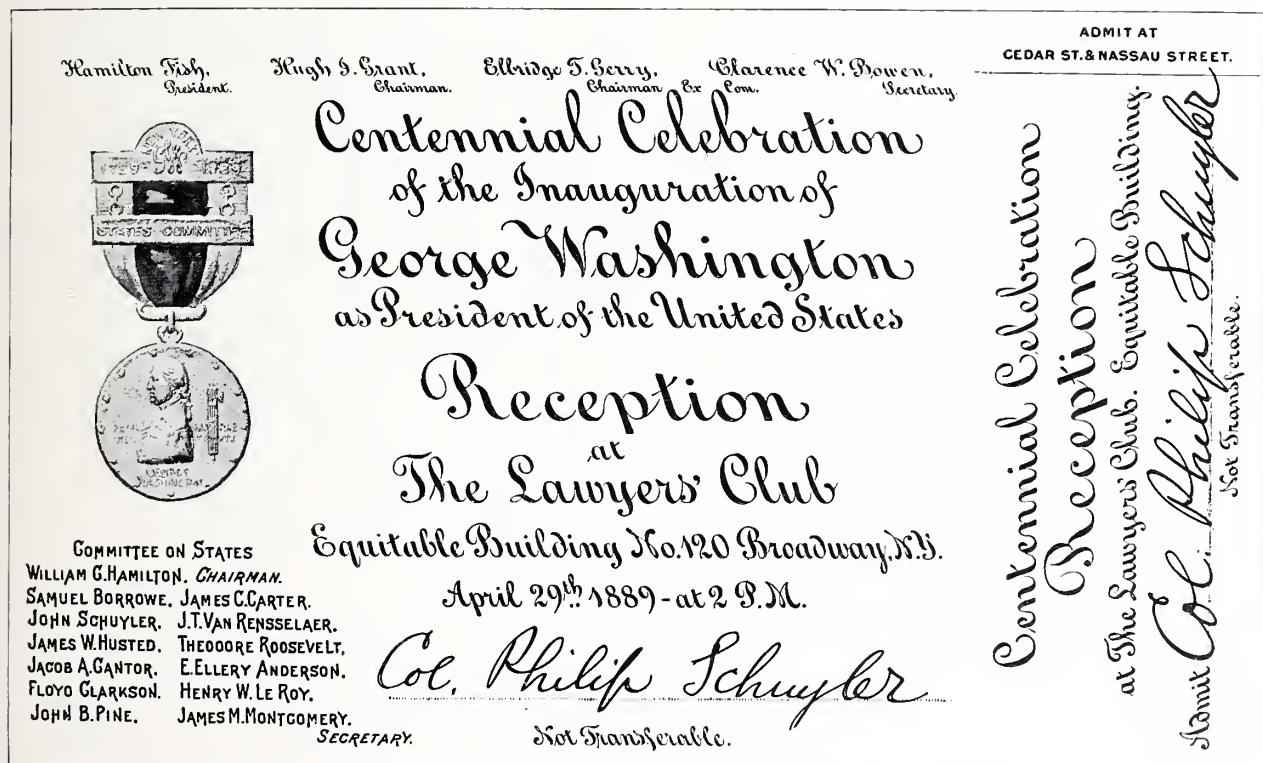 Hamilton Fish, President.
Hugh J. Grant, Chairman.
Elbridge T. Gerry, Chairman Ex Com.
Clarence W. Bowen, Secretary.
Centennial Celebration
of the Inauguration of
George Washington
as President of the United States
Reception
at
The Lawyers' Club
Equitable Building No. 120 Broadway, N.Y.
April 29th 1889 - at 2 P.M.
Col. Philip Schuyler
Not Transferable.
NEW YORK
1789 1889
STATES COMMITTEE
GEORGE
WASHINGTON
COMMITTEE ON STATES
WILLIAM G. HAMILTON. CHAIRMAN.
SAMUEL BORROWE. JAMES C. CARTER.
JOHN SCHUYLER. J.T. VAN RENSSELAER.
JAMES W. HUSTED. THEODORE ROOSEVELT.
JACOB A. CANTOR. E. ELLERY ANDERSON.
FLOYD CLARKSON. HENRY W. LE ROY.
JOHN B. PINE. JAMES M. MONTGOMERY.
SECRETARY.
ADMIT AT
CEDAR ST. & NASSAU STREET.
Centennial Celebration
Reception
at The Lawyers' Club. Equitable Building.
Admit Col. Philip Schuyler
Not Transferable.